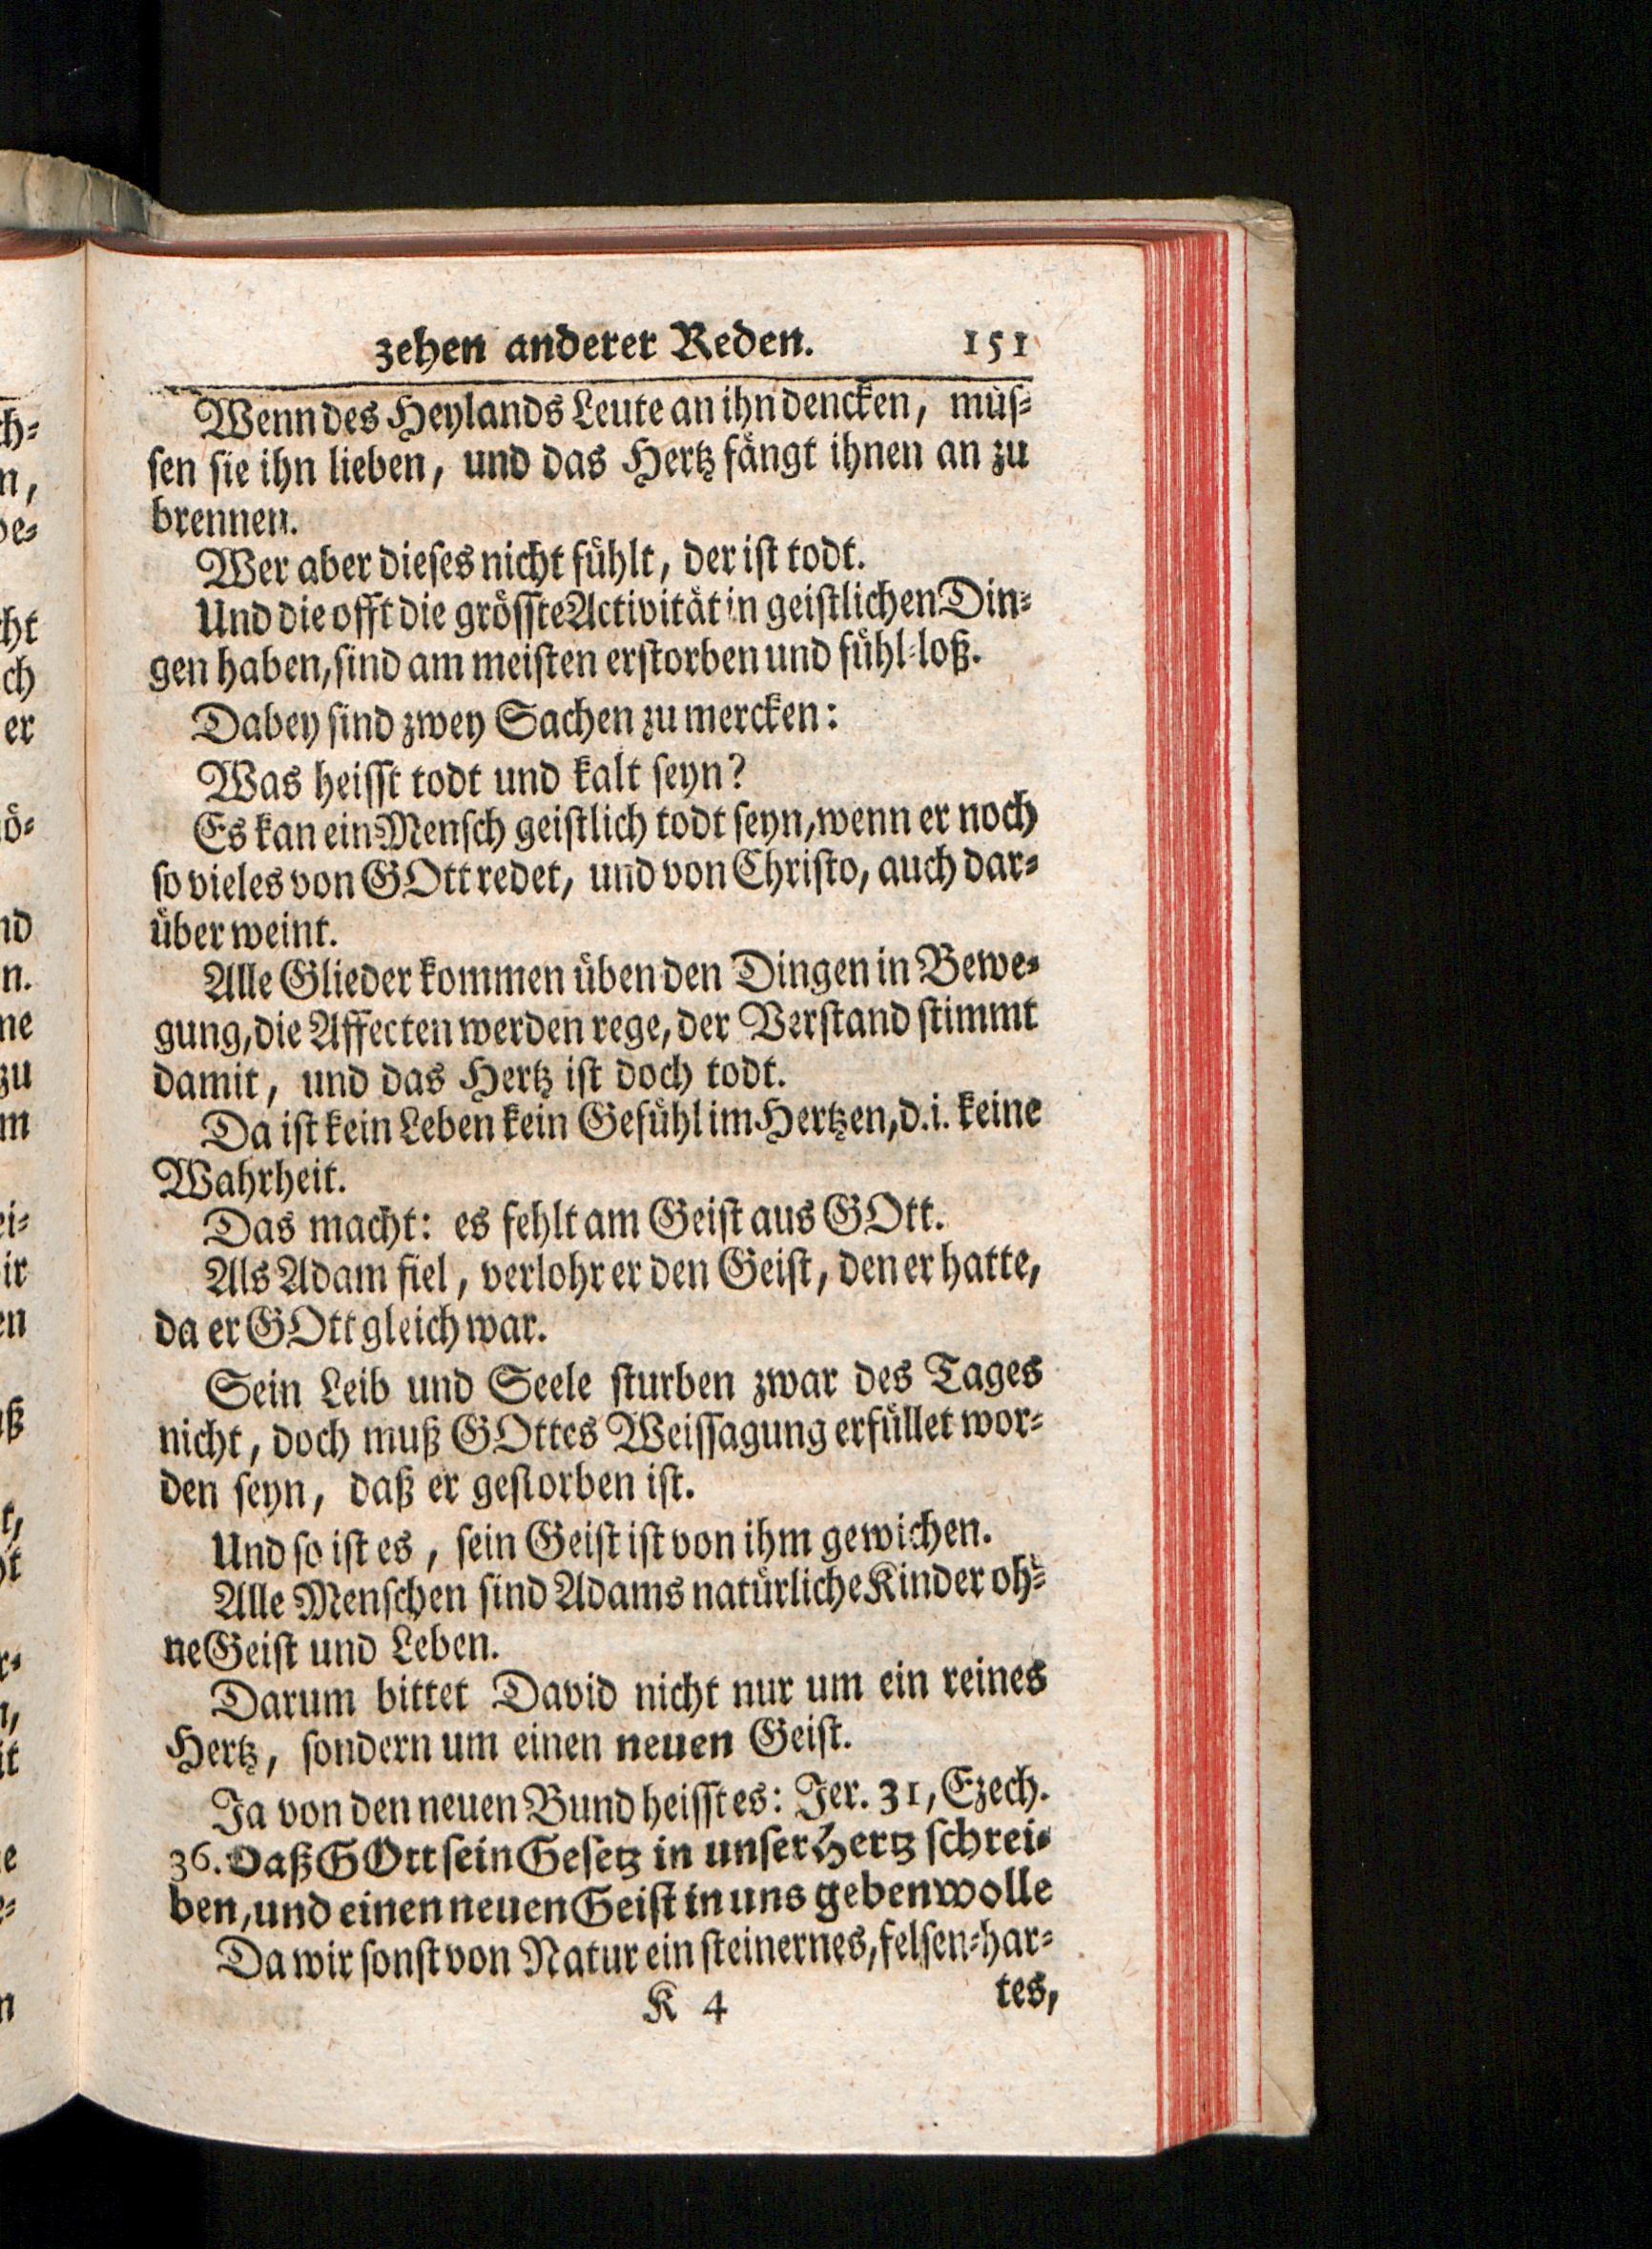 zehen anderer Reden. 151
Wenn des Heylands Leute an ihn dencken, müſ⸗
ſen ſie ihn lieben, und das Hertz fängt ihnen an zu
brennen.
Wer aber dieſes nicht fühlt, der iſt todt.
Und die offt die gröſſte Activität in geiſtlichen Din⸗
gen haben, ſind am meiſten erſtorben und fühl⸗loß.
Dabey ſind zwey Sachen zu mercken:
Was heiſſt todt und kalt ſeyn?
Es kan ein Menſch geiſtlich todt ſeyn, wenn er noch
ſo vieles von GOtt redet, und von Chriſto, auch dar⸗
über weint.
Alle Glieder kommen üben den Dingen in Bewe⸗
gung, die Affecten werden rege, der Verſtand ſtimmt
damit, und das Hertz iſt doch todt.
Da iſt kein Leben kein Gefühl im Hertzen, d.i. keine
Wahrheit.
Das macht: es fehlt am Geiſt aus GOtt.
Als Adam fiel, verlohr er den Geiſt, den er hatte,
da er GOtt gleich war.
Sein Leib und Seele ſturben zwar des Tages
nicht, doch muß GOttes Weiſſagung erfüllet wor⸗
den ſeyn, daß er geſtorben iſt.
Und ſo iſt es, ſein Geiſt iſt von ihm gewichen.
Alle Menſchen ſind Adams natürliche Kinder oh⸗
ne Geiſt und Leben.
Darum bittet David nicht nur um ein reines
Hertz, ſondern um einen neuen Geiſt.
Ja von den neuen Bund heiſſt es: Jer. 31, Ezech.
36. Daß GOtt ſein Geſetz in unſer Hertz ſchrei⸗
ben, und einen neuen Geiſt in uns geben wolle
Da wir ſonſt von Natur ein ſteinernes, felſen⸗har⸗
K 4 tes,